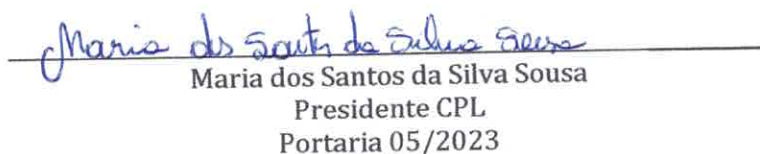 Maria dos Santos da Silva Sousa
Maria dos Santos da Silva Sousa
Presidente CPL
Portaria 05/2023